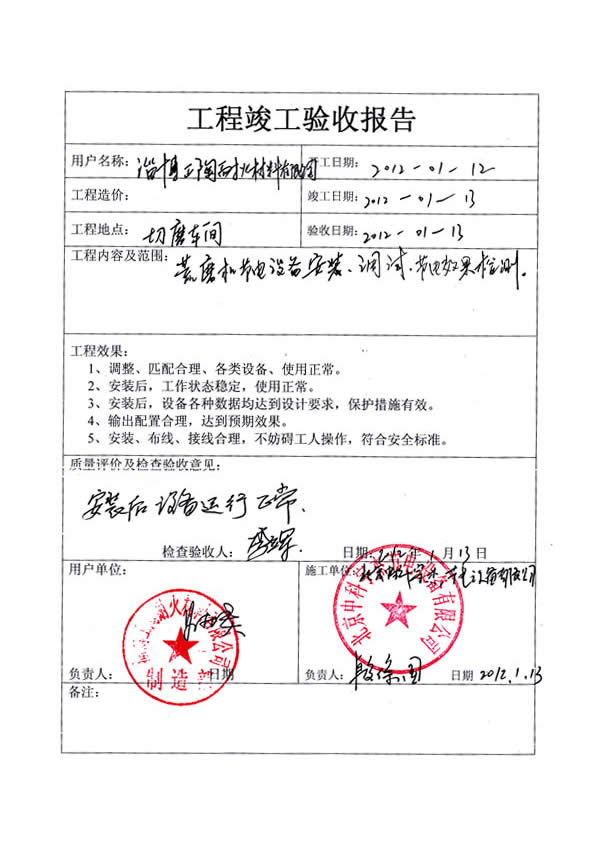 工程竣工验收报告
用户名称: 淄博 耐火材料有限公司 开工日期: 2012-01-12
工程造价: 竣工日期: 2012-01-13
工程地点: 切磨车间 验收日期: 2012-01-13
工程内容及范围: 磨机节电设备安装、调试、节电效果检测。
工程效果:
1、调整、匹配合理、各类设备、使用正常。
2、安装后，工作状态稳定，使用正常。
3、安装后，设备各种数据均达到设计要求，保护措施有效。
4、输出配置合理，达到预期效果。
5、安装、布线、接线合理，不妨碍工人操作，符合安全标准。
质量评价及检查验收意见:
安装后设备运行正常.
检查验收人: 日期: 2012年1月13日
用户单位: 施工单位: 节电设备有限公司
火 有限公司
制造部
北京中科 节电设备有限公司
负责人: 日期 负责人: 日期 2012.1.13
备注: